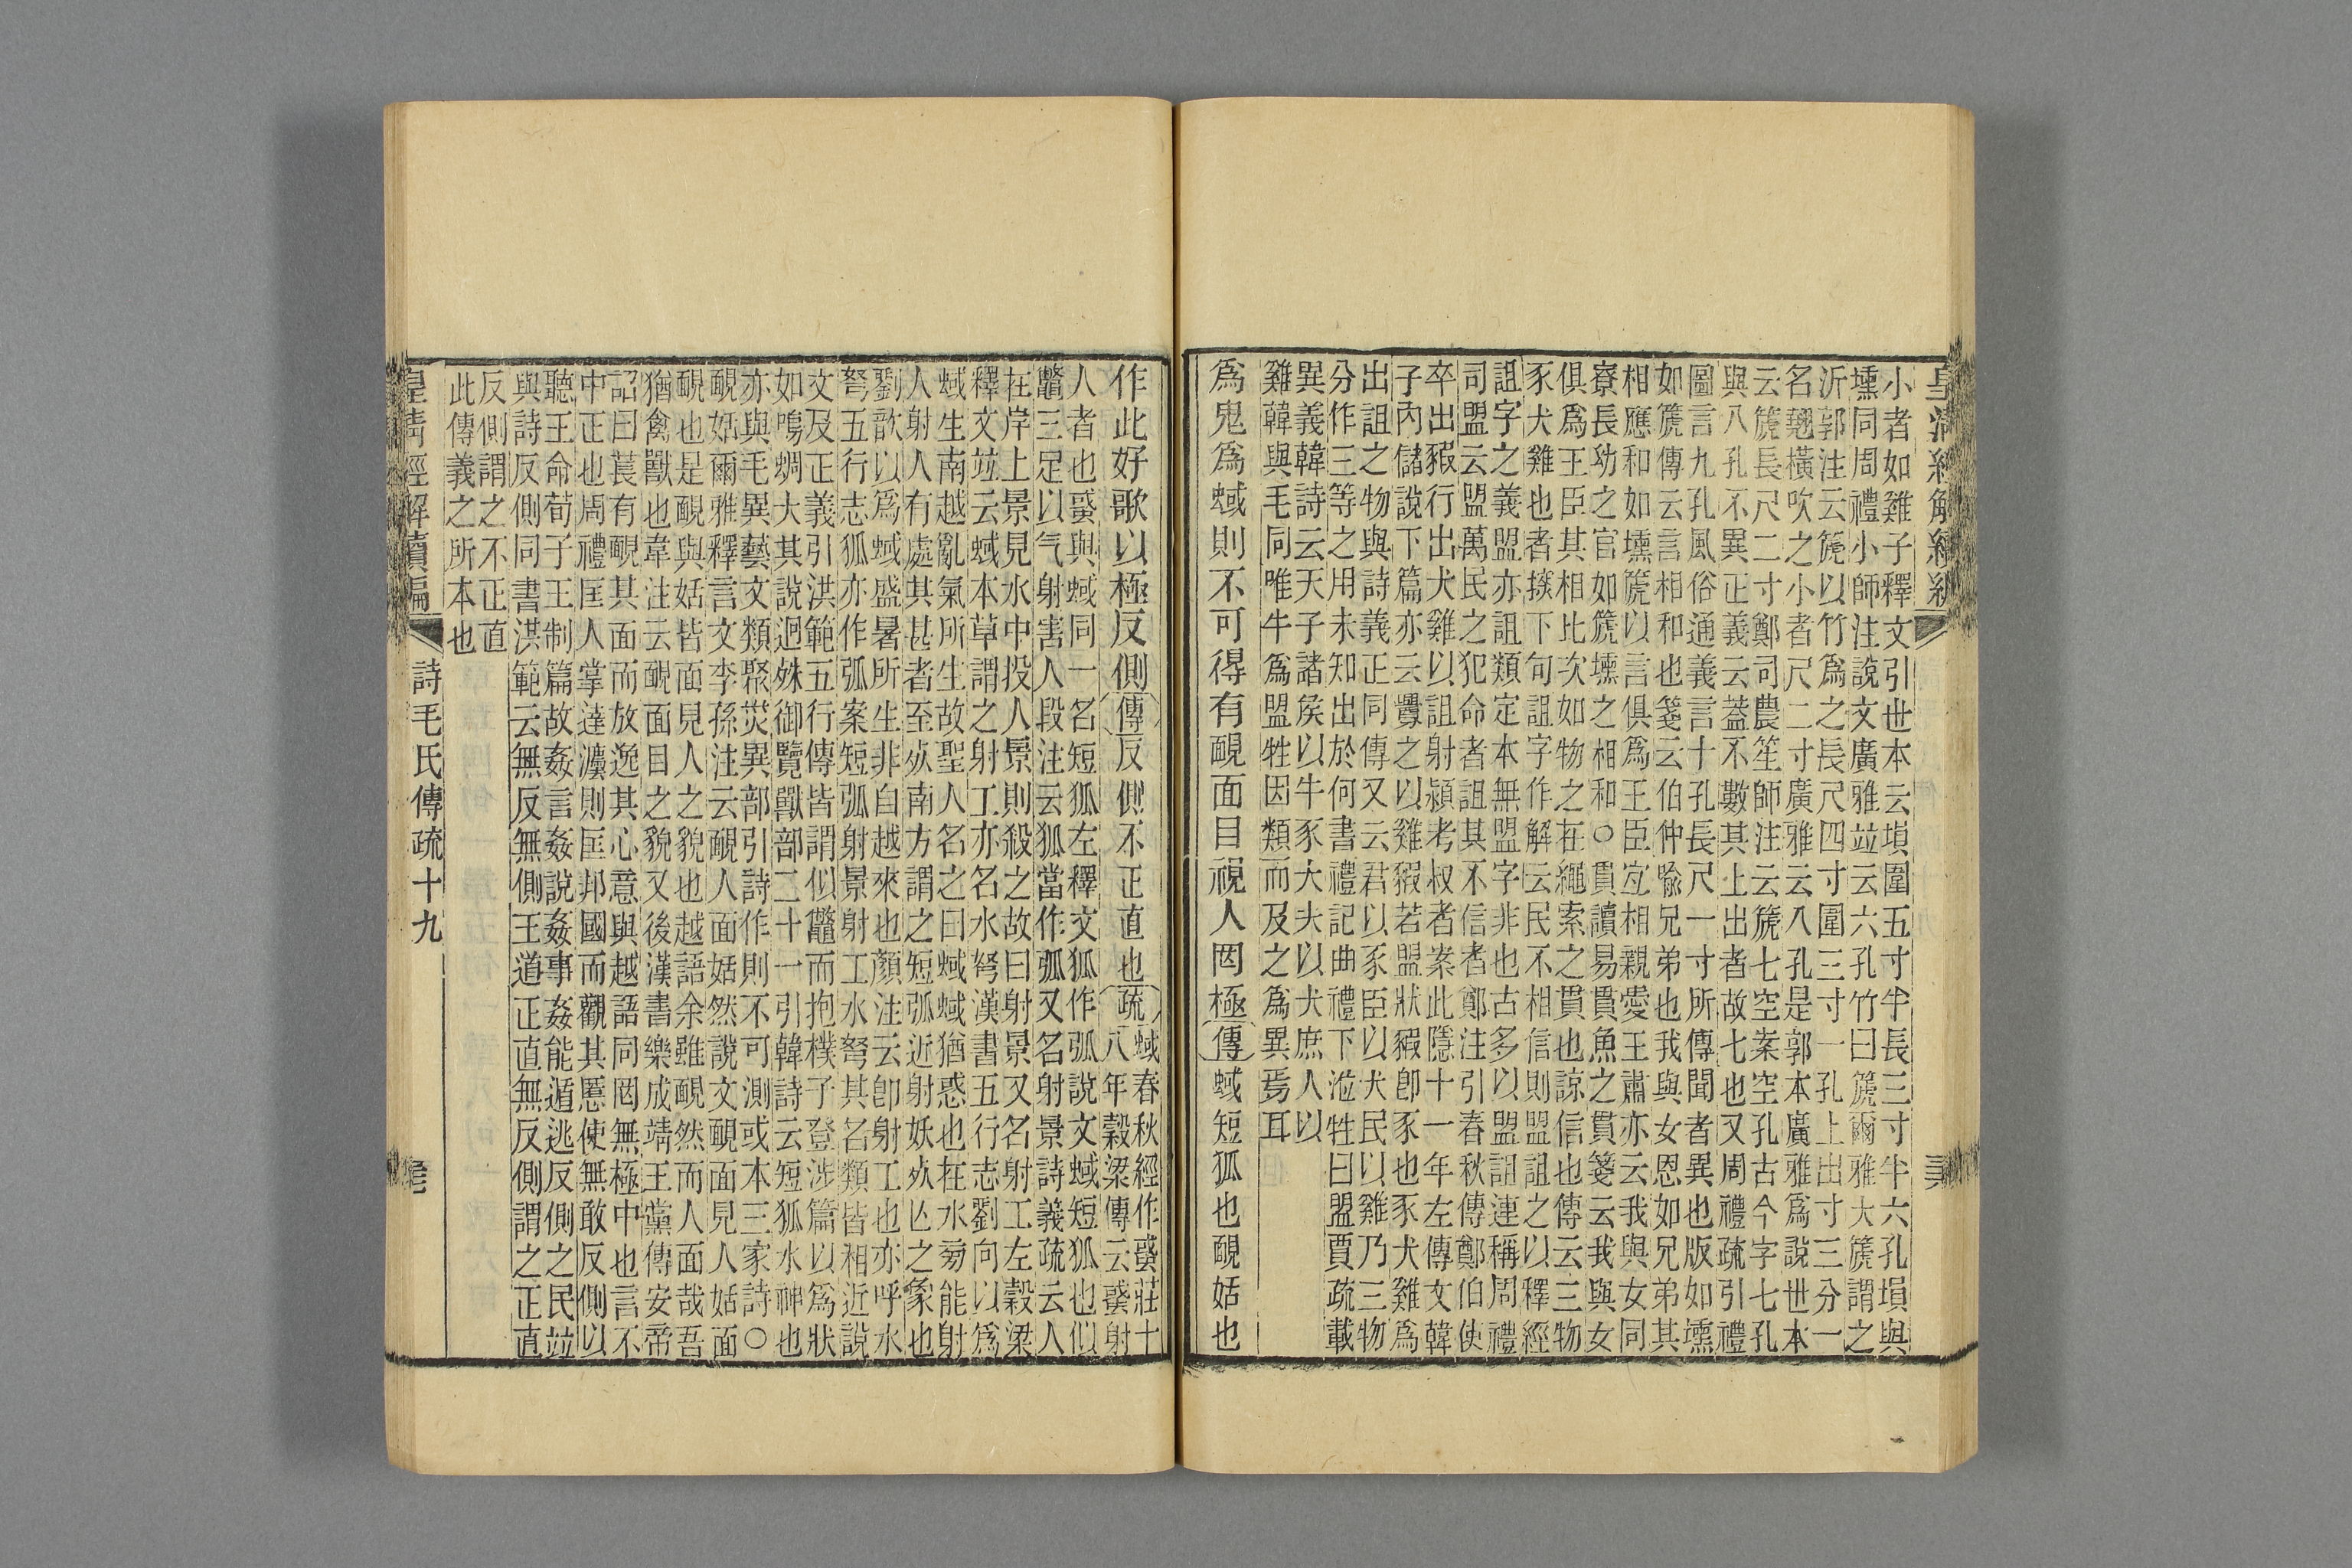 小者如雞子釋文引世本云塤圍五寸半長三寸半六孔塤與
壎同周禮小師注說文廣雅竝云六孔竹曰篪爾雅大篪謂之
沂郭注云篪以竹爲之長尺四寸圍三寸一孔上出寸三分一
名翹橫吹之小者尺二寸廣雅云八孔是郭本廣雅爲說世本
云篪長尺二寸鄭司農笙師注云篪七空案空孔古今字七孔
與八孔不異正義云蓋不數其上出者故七也又周禮疏引禮
圖言九孔風俗通義言十孔長尺一寸所傳聞者異也版如壎
如篪傳云言相和也箋云伯仲喩兄弟也我與女恩如兄弟其
相應和如壎篪以言俱爲王臣宐相親愛王肅亦云我與女同
寮長幼之官如篪壎之相和○貫讀易貫魚之貫箋云我與女
俱爲王臣其相比次如物之在繩索之貫也諒信也傳云三物
豕犬雞也者探下句詛字作解云民不相信則盟詛之以釋經
詛字之義盟亦詛類定本無盟字非也古多以盟詛連稱周禮
司盟云盟萬民之犯命者詛其不信者鄭注引春秋傳鄭伯使
卒出豭行出犬雞以詛射潁考叔者案此隱十一年左傳文韓
子內儲說下篇亦云釁之以雞豭若盟狀豭卽豕也豕犬雞爲
出詛之物與詩義正同傳又云君以豕臣以犬民以雞乃三物
分作三等之用未知出於何書禮記曲禮下涖牲曰盟賈疏載
異義韓詩云天子諸矦以牛豕大夫以犬庶人以
雞韓與毛同唯牛爲盟牲因類而及之爲異焉耳
爲鬼爲蜮則不可得有靦面目視人罔極傳蜮短狐也靦姡也
作此好歌以極反側傳反側不正直也疏蜮春秋經作蜮莊十
八年穀梁傳云蜮射
人者也蜮與蜮同一名短狐左釋文狐作弧說文蜮短狐也似
鼈三足以气射害人段注云狐當作弧又名射景詩義疏云人
在岸上景見水中投人景則殺之故曰射景又名射工左穀梁
釋文竝云蜮本草謂之射工亦名水弩漢書五行志劉向以爲
蜮生南越亂氣所生故聖人名之曰蜮蜮猶惑也在水㫄能射
人射人有處其甚者至死南方謂之短弧近射妖死亾之象也
劉歆以爲蜮盛暑所生非自越來也顏注云卽射工也亦呼水
弩五行志狐亦作弧案短弧射景射工水弩其名類皆相近說
文及正義引洪範五行傳皆謂似鼈而抱樸子登涉篇以爲狀
如鳴蜩大其說迥殊御覽獸部二十一引韓詩云短狐水神也
亦與毛異藝文類聚災異部引詩作則不可測或本三家詩○
靦姡爾雅釋言文李孫注云靦人面姡然說文靦面見人姡面
靦也是靦與姡皆面見人之貌也越語余雖靦然而人面哉吾
猶禽獸也韋注云靦面目之貌又後漢書樂成靖王黨傳安帝
詔曰萇有靦其面而放逸其心意與越語同罔無極中也言不
中正也周禮匡人掌達灋則匡邦國而觀其慝使無敢反側以
聽王命荀子王制篇故姦言姦說姦事姦能遁逃反側之民竝
與詩反側同書洪範云無反無側王道正直無反側謂之正直
反側謂之不正直
此傳義之所本也
皇清經解續編
詩毛氏傳疏十九